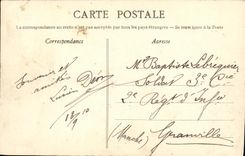 CARTE POSTALE
La correspondance au recto n'est pas acceptée par tous les pays étrangers - Se renseigner à la Poste
Correspondance
Adresse
Mr Baptiste
Soldat 3e Cie
2e Régt d'Infie
Granville
(Manche)
Souvenir et
amitiés
Lucien
18/9 10